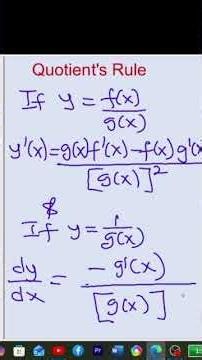 Quotient's Rule
If y = f(x)/g(x)
y'(x) = g(x)f'(x) - f(x)g'(x)/[g(x)]²
If y = 1/g(x)
dy/dx = -g'(x)/[g(x)]